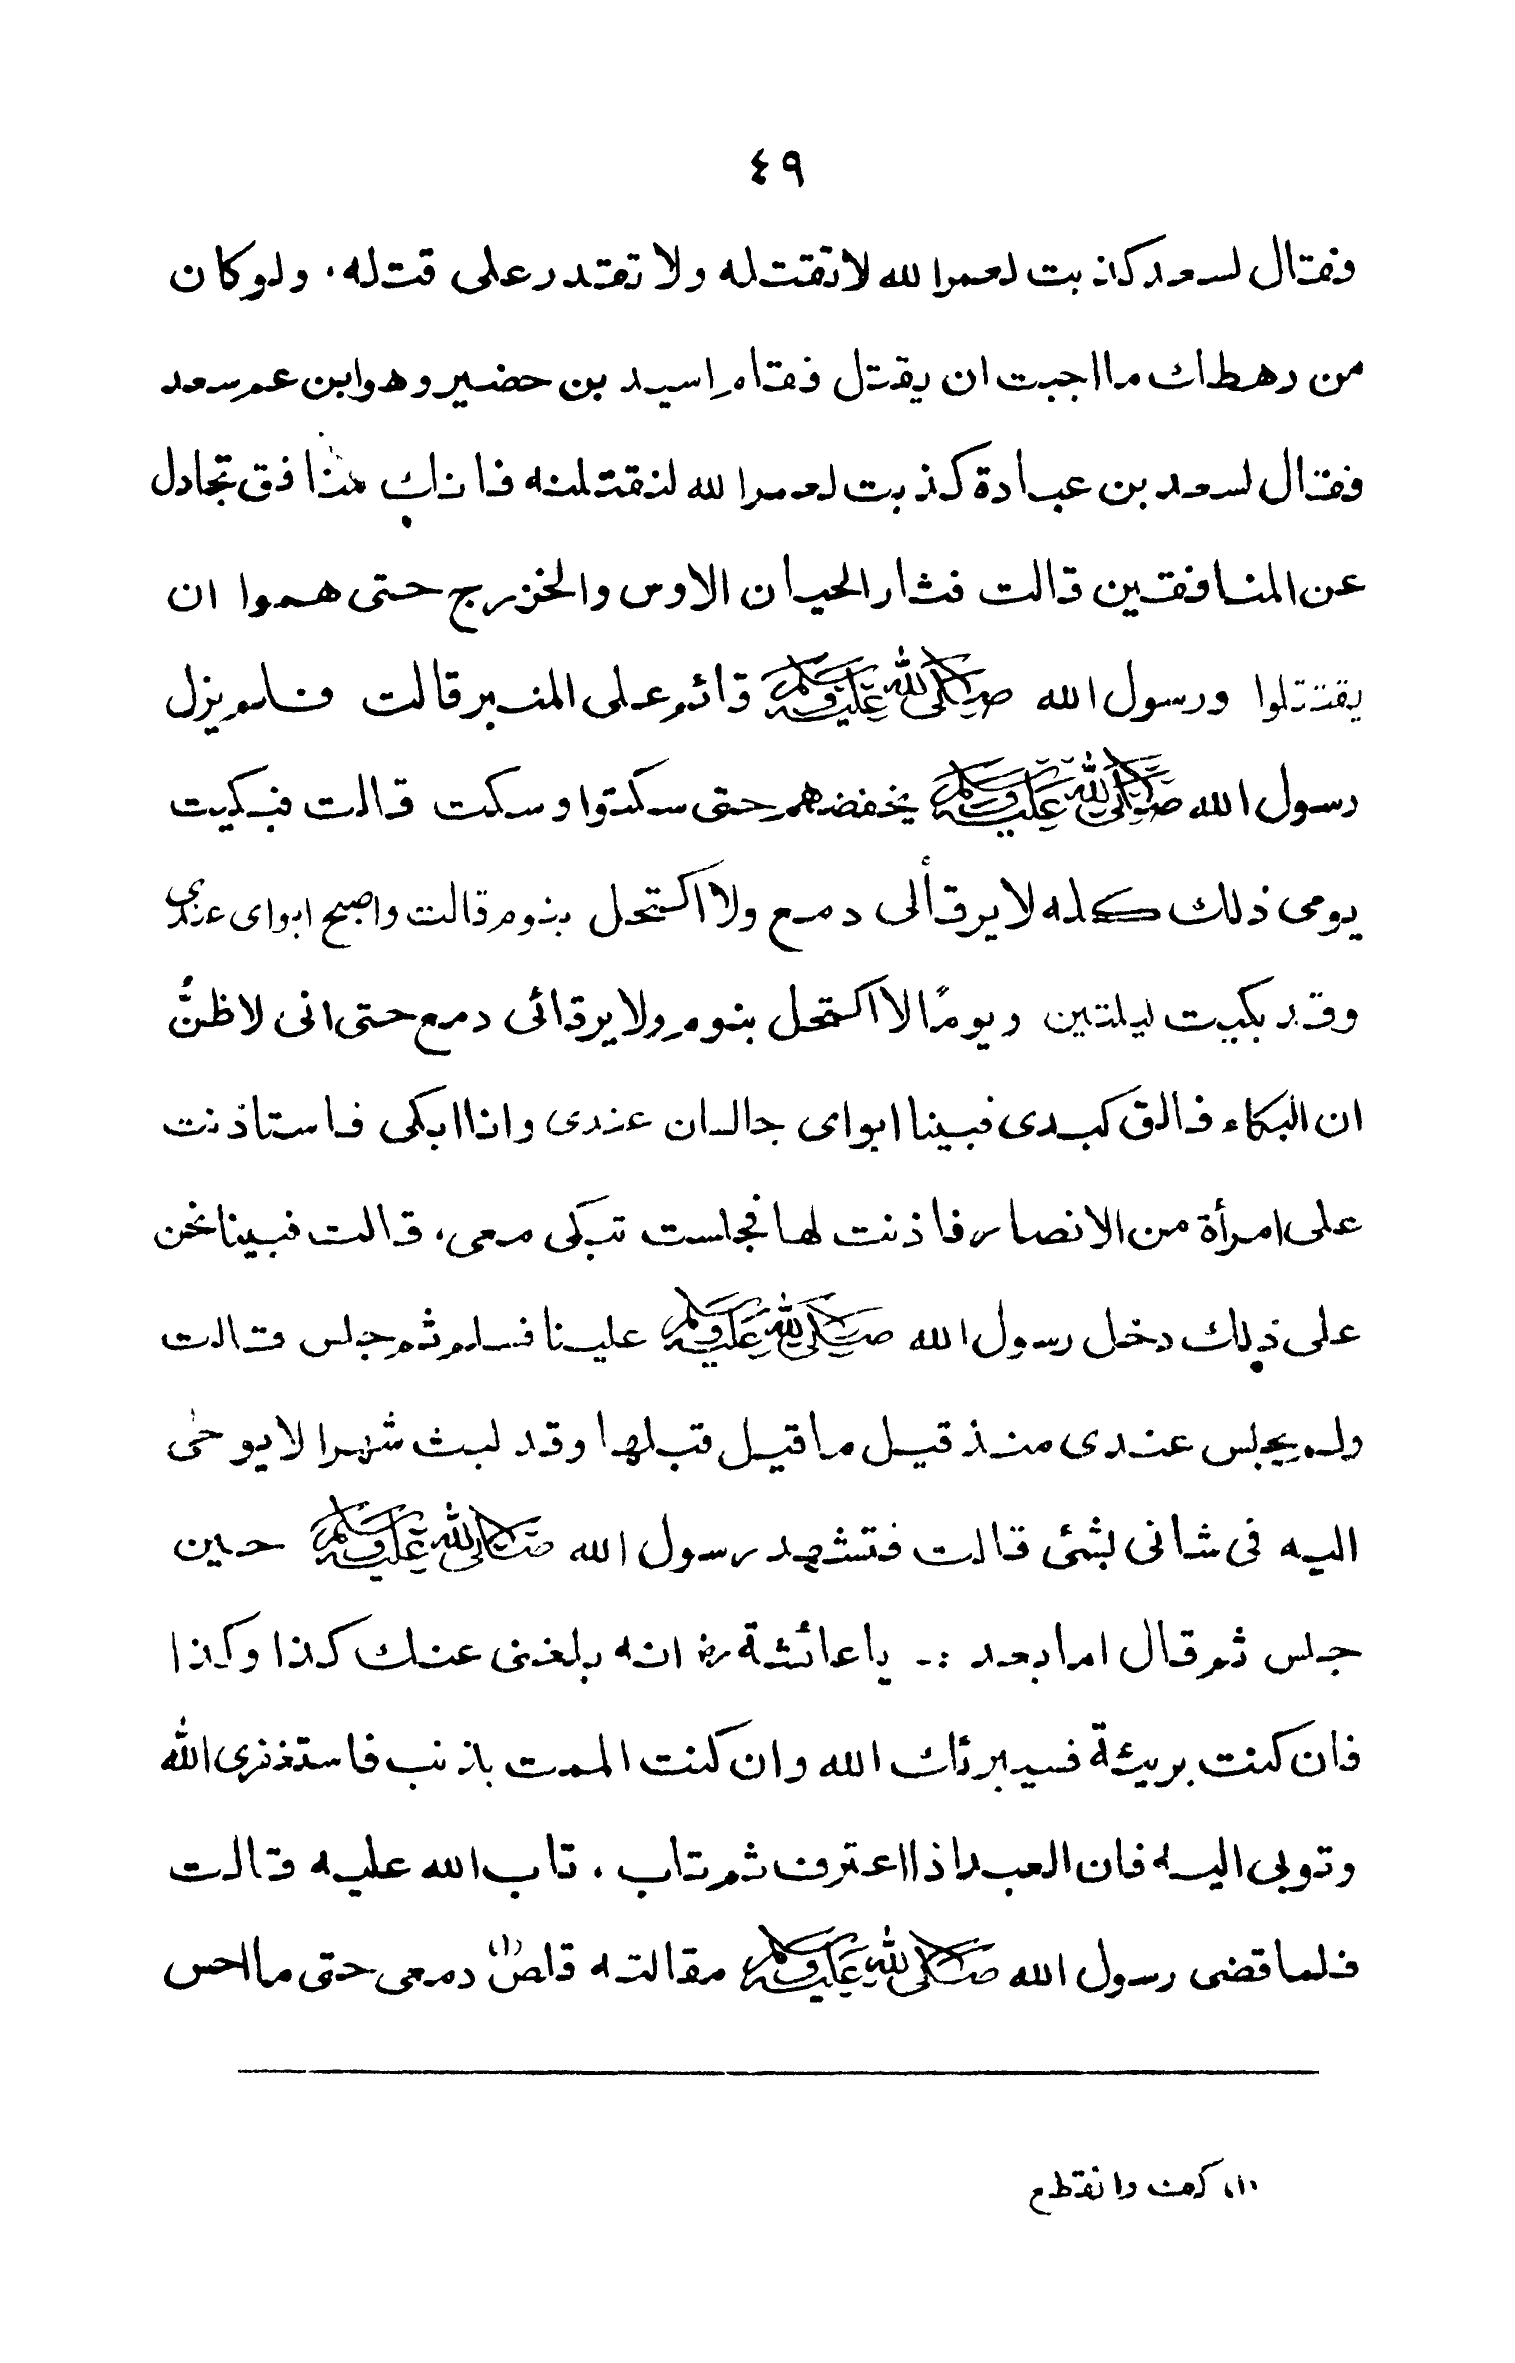 ٤٩
فقال لسعد كذبت لعمرالله لا تقتله ولا تقتدر على قتله، ولو كان
من رهطك ما اجبت ان يقتل فقام اسيد بن حضير وهو ابن عم سعد
فقال لسعد بن عبادة كذبت لعمرالله لنقتلنه فانك منافق تجادل
عن المنافقين قالت فثار الحيان الاوس والخزرج حتى هموا ان
يقتتلوا ورسول الله ﷺ قائم على المنبر قالت فلم يزل
رسول الله ﷺ يخفضهم حتى سكتوا وسكت قالت فبكيت
يومى ذلك كله لا يرقألى دمع ولا اكتحل بنوم قالت واصبح ابواى عندى
وقد بكيت ليلتين ويومًا لا اكتحل بنوم ولا يرقائى دمع حتى انى لاظنُّ
ان البكاء فالق كبدى فبينا ابواى جالسان عندى وانا ابكى فاستاذنت
على امرأة من الانصار فاذنت لها فجلست تبكى معى، قالت فبينا نحن
على ذلك دخل رسول الله ﷺ علينا فسلم ثم جلس قالت
ولم يجلس عندى منذ قيل ما قيل قبلها وقد لبث شهرا لا يوحٰى
اليه فى شانى بشئ قالت فتشهد رسول الله ﷺ حين
جلس ثم قال اما بعد :- يا عائشة رض انه بلغنى عنك كذا وكذا
فان كنت بريئة فسيبرئك الله وان كنت الممت بذنب فاستغفرى الله
وتوبى اليه فان العبد اذا اعترف ثم تاب، تاب الله عليه قالت
فلما قضى رسول الله ﷺ مقالته قلص (١) دمعى حتى ما احس
(١) كف وانقطع